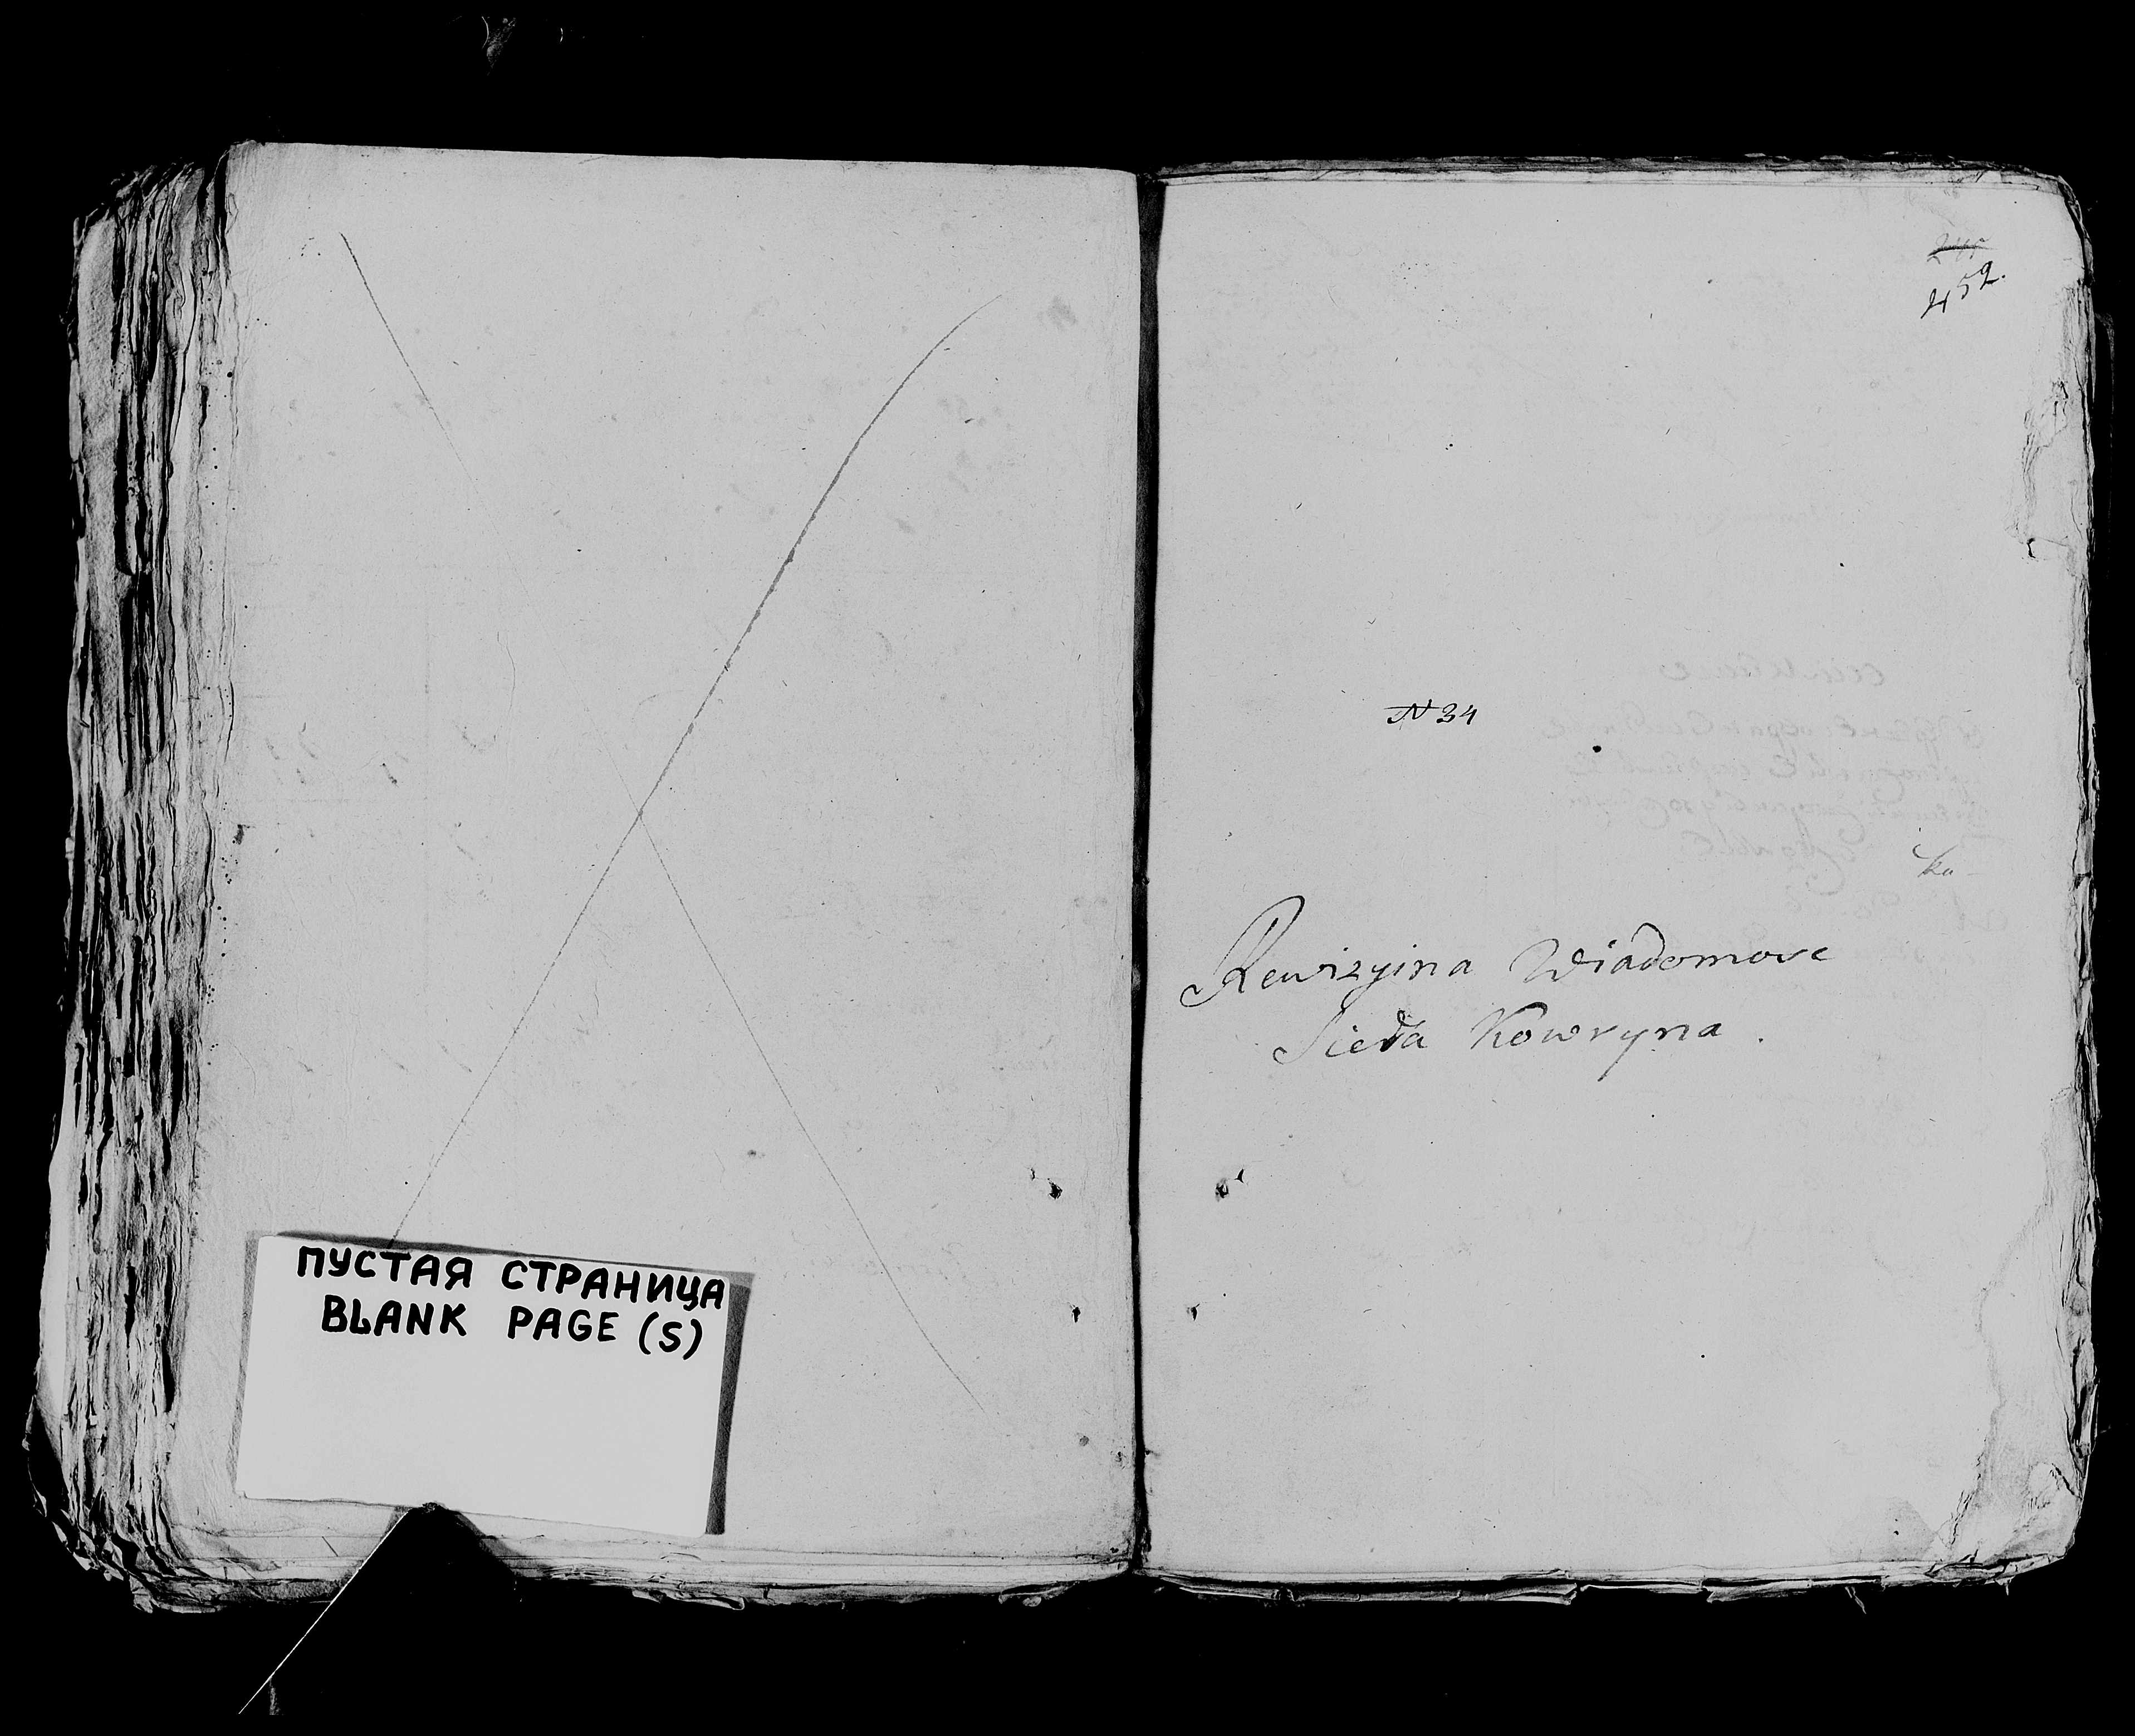 ПУСТАЯ СТРАНИЦА
BLANK PAGE (S)
452.
N 34
Rewizyina Wiadomosc
Sieła Kowryna.